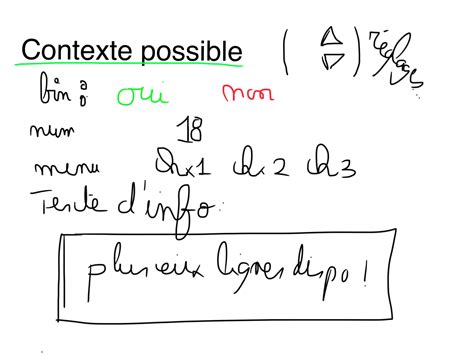 Contexte possible ( △ ▽ ) réglages
bin : oui non
num 18
menu Chx1 Chx2 Ch3
Texte d'info :
plusieux lignes dispo !